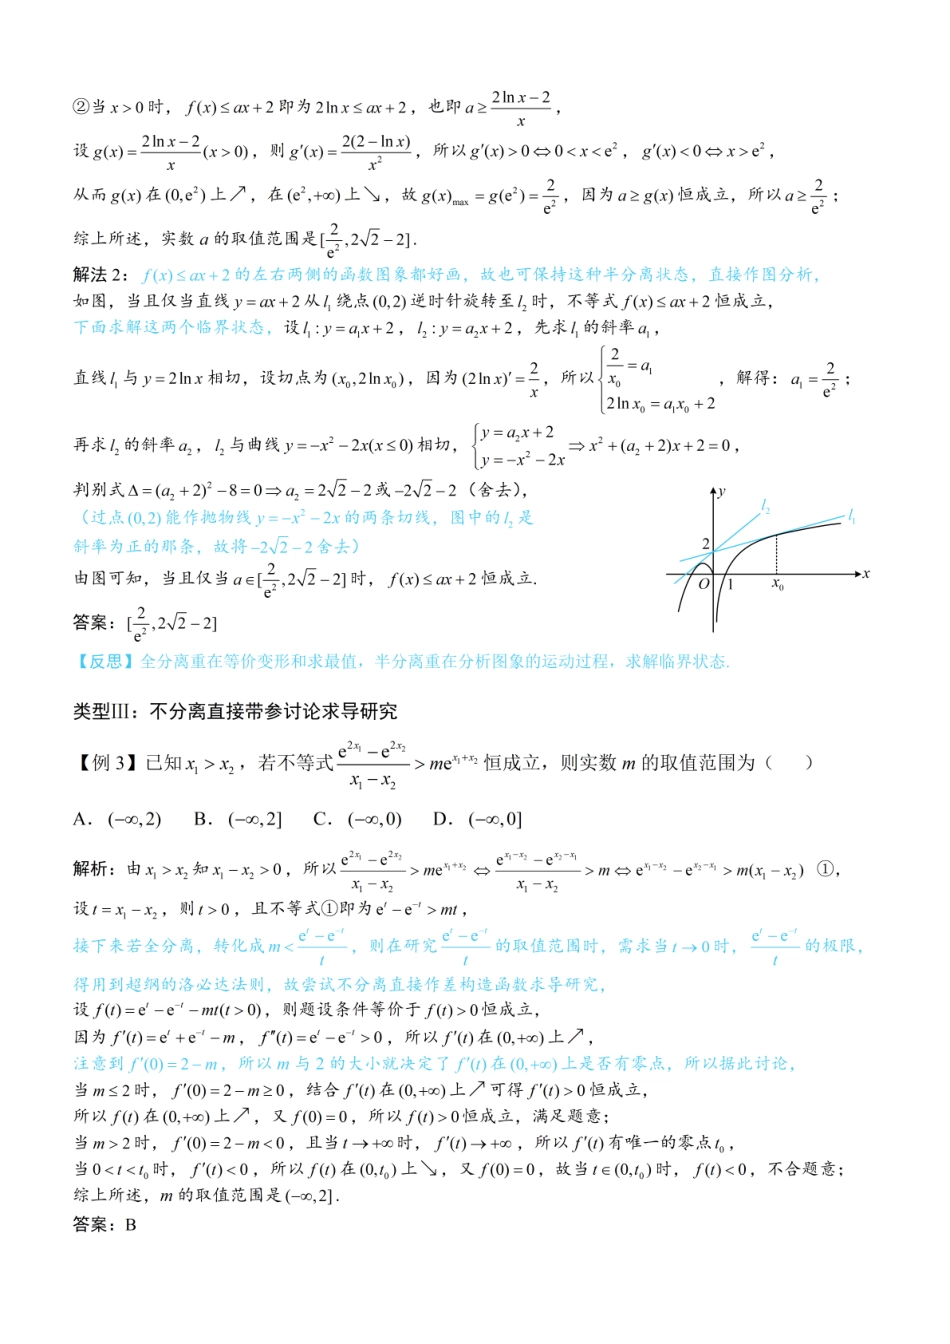 ②当 x > 0 时， f(x) ≤ ax + 2 即为 2ln x ≤ ax + 2 ，也即 a ≥ (2ln x − 2)/x ，
设 g(x) = (2ln x − 2)/x (x > 0) ，则 g′(x) = 2(2 − ln x)/x² ，所以 g′(x) > 0 ⇔ 0 < x < e² ， g′(x) < 0 ⇔ x > e² ，
从而 g(x) 在 (0,e²) 上↗，在 (e²,+∞) 上↘，故 g(x)max = g(e²) = 2/e² ，因为 a ≥ g(x) 恒成立，所以 a ≥ 2/e² ；
综上所述，实数 a 的取值范围是 [2/e² ,2√2 − 2] .
解法 2： f(x) ≤ ax + 2 的左右两侧的函数图象都好画，故也可保持这种半分离状态，直接作图分析，
如图，当且仅当直线 y = ax + 2 从 l₁ 绕点 (0,2) 逆时针旋转至 l₂ 时，不等式 f(x) ≤ ax + 2 恒成立，
下面求解这两个临界状态，设 l₁ : y = a₁x + 2 ， l₂ : y = a₂x + 2 ，先求 l₁ 的斜率 a₁ ，
直线 l₁ 与 y = 2ln x 相切，设切点为 (x₀ ,2ln x₀) ，因为 (2ln x)′ = 2/x ，所以 { 2/x₀ = a₁ ; 2ln x₀ = a₁x₀ + 2 ，解得： a₁ = 2/e² ；
再求 l₂ 的斜率 a₂ ， l₂ 与曲线 y = −x² − 2x(x ≤ 0) 相切， { y = a₂x + 2 ; y = −x² − 2x ⇒ x² + (a₂ + 2)x + 2 = 0 ，
判别式 Δ = (a₂ + 2)² − 8 = 0 ⇒ a₂ = 2√2 − 2 或 −2√2 − 2 （舍去），
（过点 (0,2) 能作抛物线 y = −x² − 2x 的两条切线，图中的 l₂ 是
斜率为正的那条，故将 −2√2 − 2 舍去）
由图可知，当且仅当 a ∈ [2/e² ,2√2 − 2] 时， f(x) ≤ ax + 2 恒成立.
答案： [2/e² ,2√2 − 2]
y
l₂
l₁
2
O
1
x₀
x
【反思】全分离重在等价变形和求最值，半分离重在分析图象的运动过程，求解临界状态.
类型Ⅲ：不分离直接带参讨论求导研究
【例 3】已知 x₁ > x₂ ，若不等式 (e^(2x₁) − e^(2x₂))/(x₁ − x₂) > me^(x₁+x₂) 恒成立，则实数 m 的取值范围为（　　）
A． (−∞,2) B． (−∞,2] C． (−∞,0) D． (−∞,0]
解析：由 x₁ > x₂ 知 x₁ − x₂ > 0 ，所以 (e^(2x₁) − e^(2x₂))/(x₁ − x₂) > me^(x₁+x₂) ⇔ (e^(x₁−x₂) − e^(x₂−x₁))/(x₁ − x₂) > m ⇔ e^(x₁−x₂) − e^(x₂−x₁) > m(x₁ − x₂) ①，
设 t = x₁ − x₂ ，则 t > 0 ，且不等式①即为 e^t − e^(−t) > mt ，
接下来若全分离，转化成 m < (e^t − e^(−t))/t ，则在研究 (e^t − e^(−t))/t 的取值范围时，需求当 t → 0 时， (e^t − e^(−t))/t 的极限，
得用到超纲的洛必达法则，故尝试不分离直接作差构造函数求导研究，
设 f(t) = e^t − e^(−t) − mt(t > 0) ，则题设条件等价于 f(t) > 0 恒成立，
因为 f′(t) = e^t + e^(−t) − m ， f″(t) = e^t − e^(−t) > 0 ，所以 f′(t) 在 (0,+∞) 上↗，
注意到 f′(0) = 2 − m ，所以 m 与 2 的大小就决定了 f′(t) 在 (0,+∞) 上是否有零点，所以据此讨论，
当 m ≤ 2 时， f′(0) = 2 − m ≥ 0 ，结合 f′(t) 在 (0,+∞) 上↗可得 f′(t) > 0 恒成立，
所以 f(t) 在 (0,+∞) 上↗，又 f(0) = 0 ，所以 f(t) > 0 恒成立，满足题意；
当 m > 2 时， f′(0) = 2 − m < 0 ，且当 t → +∞ 时， f′(t) → +∞ ，所以 f′(t) 有唯一的零点 t₀ ，
当 0 < t < t₀ 时， f′(t) < 0 ，所以 f(t) 在 (0,t₀) 上↘，又 f(0) = 0 ，故当 t ∈ (0,t₀) 时， f(t) < 0 ，不合题意；
综上所述，m 的取值范围是 (−∞,2] .
答案：B